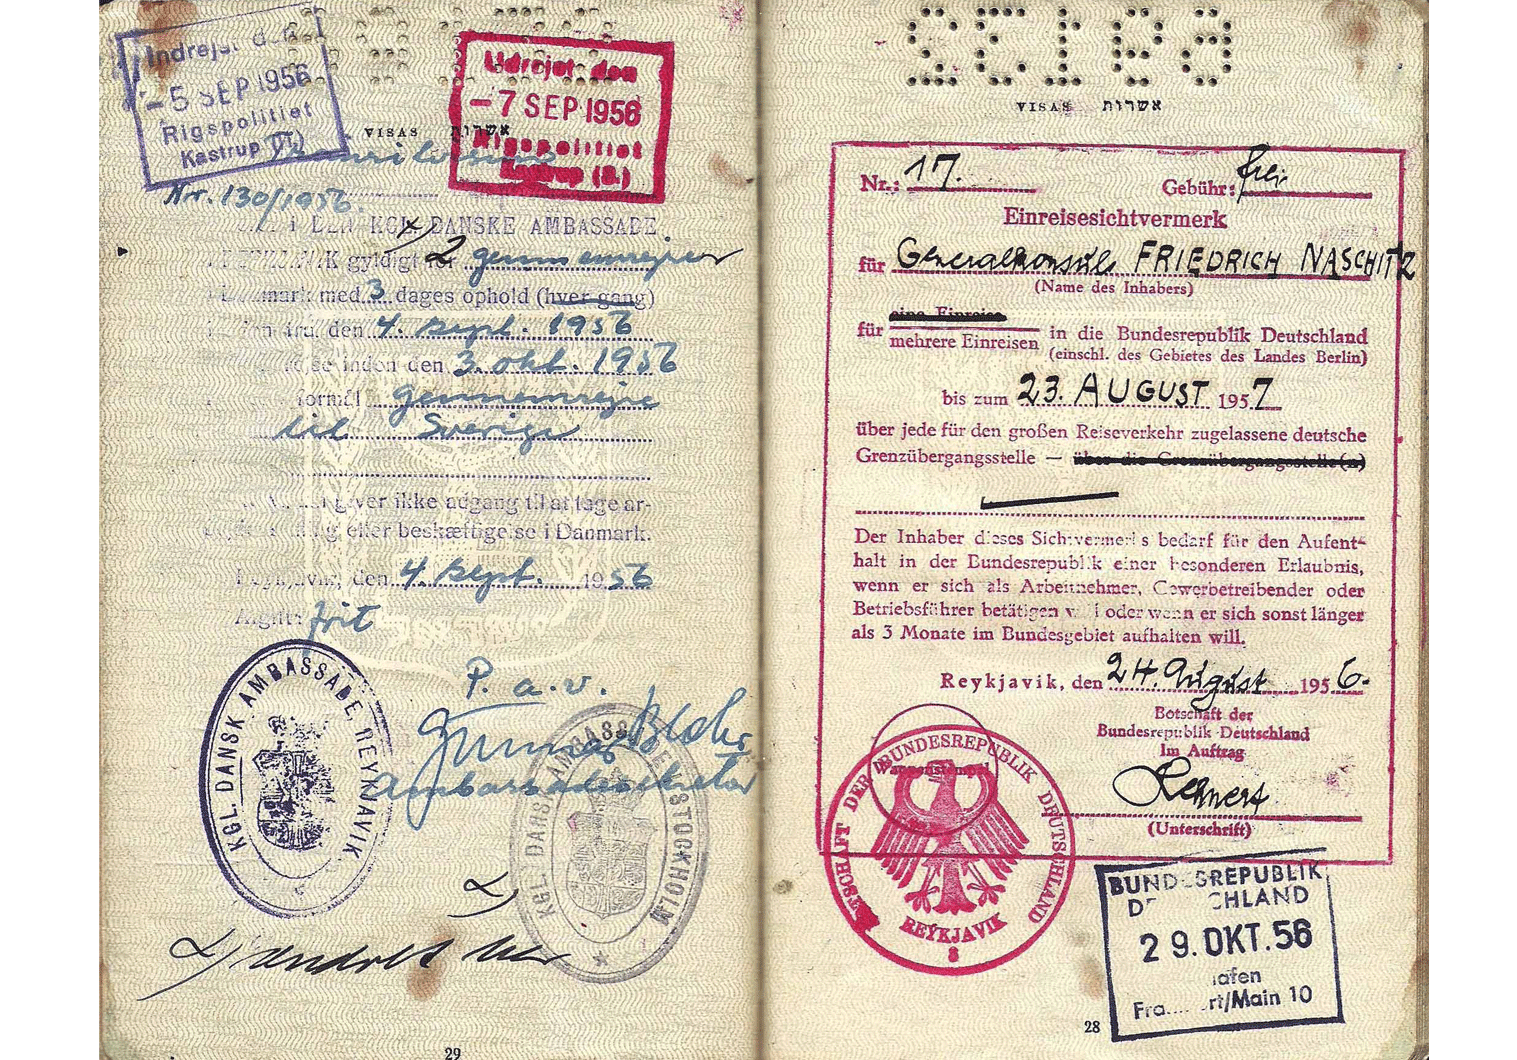 Indrejst den
-5 SEP 1956
Rigspolitiet
Kastrup
Udrejst den
-7 SEP 1956
Rigspolitiet
Kastrup (S.)
VISAS אשרות
Nr. 130/1956
DEN KGL. DANSKE AMBASSADE
gyldigt for 2 gennemrejser
med 3 dages ophold (hver gang)
den 4. sept. 1956
inden den 3. okt. 1956
formål gennemrejse
til Sverige
giver ikke adgang til at tage ar-
eller beskæftigelse i Danmark.
Reykjavik, den 4. sept. 1956
Afgift: frit
P. a. v.
Gunnar Blæhr
Ambassadesekretær
KGL. DANSK AMBASSADE, REYKJAVIK.
KGL. DANSK AMBASSADE STOCKHOLM
29
69132
VISAS אשרות
Nr.: 17. Gebühr: frei
Einreisesichtvermerk
für Generalkonsul FRIEDRICH NASCHITZ
(Name des Inhabers)
für eine Einreise
mehrere Einreisen in die Bundesrepublik Deutschland
(einschl. des Gebietes des Landes Berlin)
bis zum 23. AUGUST 1957
über jede für den großen Reiseverkehr zugelassene deutsche
Grenzübergangsstelle — über die Grenzübergangsstelle(n)
Der Inhaber dieses Sichtvermerks bedarf für den Aufent-
halt in der Bundesrepublik einer besonderen Erlaubnis,
wenn er sich als Arbeitnehmer, Gewerbetreibender oder
Betriebsführer betätigen will oder wenn er sich sonst länger
als 3 Monate im Bundesgebiet aufhalten will.
Reykjavik, den 24. August 1956.
Botschaft der
Bundesrepublik Deutschland
Im Auftrag
Lehnert
(Unterschrift)
BOTSCHAFT DER BUNDESREPUBLIK DEUTSCHLAND
REYKJAVIK
8
BUNDESREPUBLIK
DEUTSCHLAND
29. OKT. 56
Frankfurt/Main 10
28